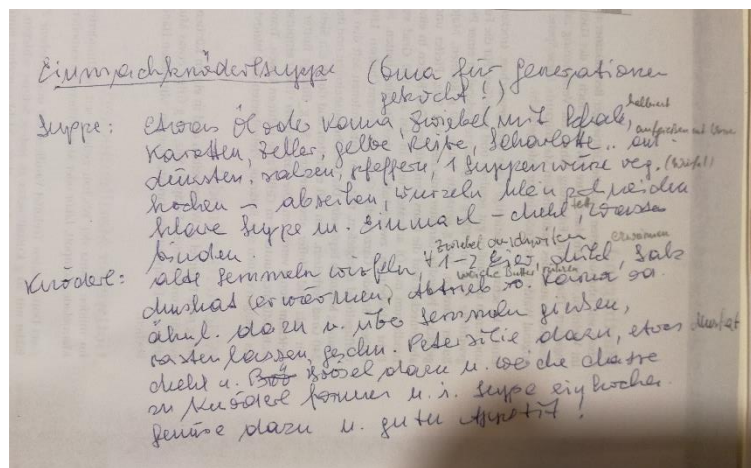 Einmachknöderlsuppe (Oma für Generationen
gekocht!)
Suppe: Etwas Öl oder Rama, Zwiebel mit Schale, halbiert
Karotten, Zeller, gelbe Rübe, Schalotte.. an-
dünsten, salzen, pfeffern, 1 Suppenwürze veg. (Würfel)
kochen – abseihen, Wurzeln klein schneiden
klare Suppe m. Einmach – Mehl, Fett, Wasser
binden.
Zwiebel anschwitzen erwärmen
Knöderl: alte Semmeln würfeln, 1-2 Eier, Milch, Salz
weiche Butter
Muskat (erwärmen) Abtrieb m. Rama od.
ähnl. dazu u. über Semmeln gießen,
rasten lassen, geschn. Petersilie dazu, etwas Muskat
Mehl u. Brösel dazu u. weiche Masse
zu Knöderl formen u. i. Suppe einkochen.
Gemüse dazu u. guten Appetit!